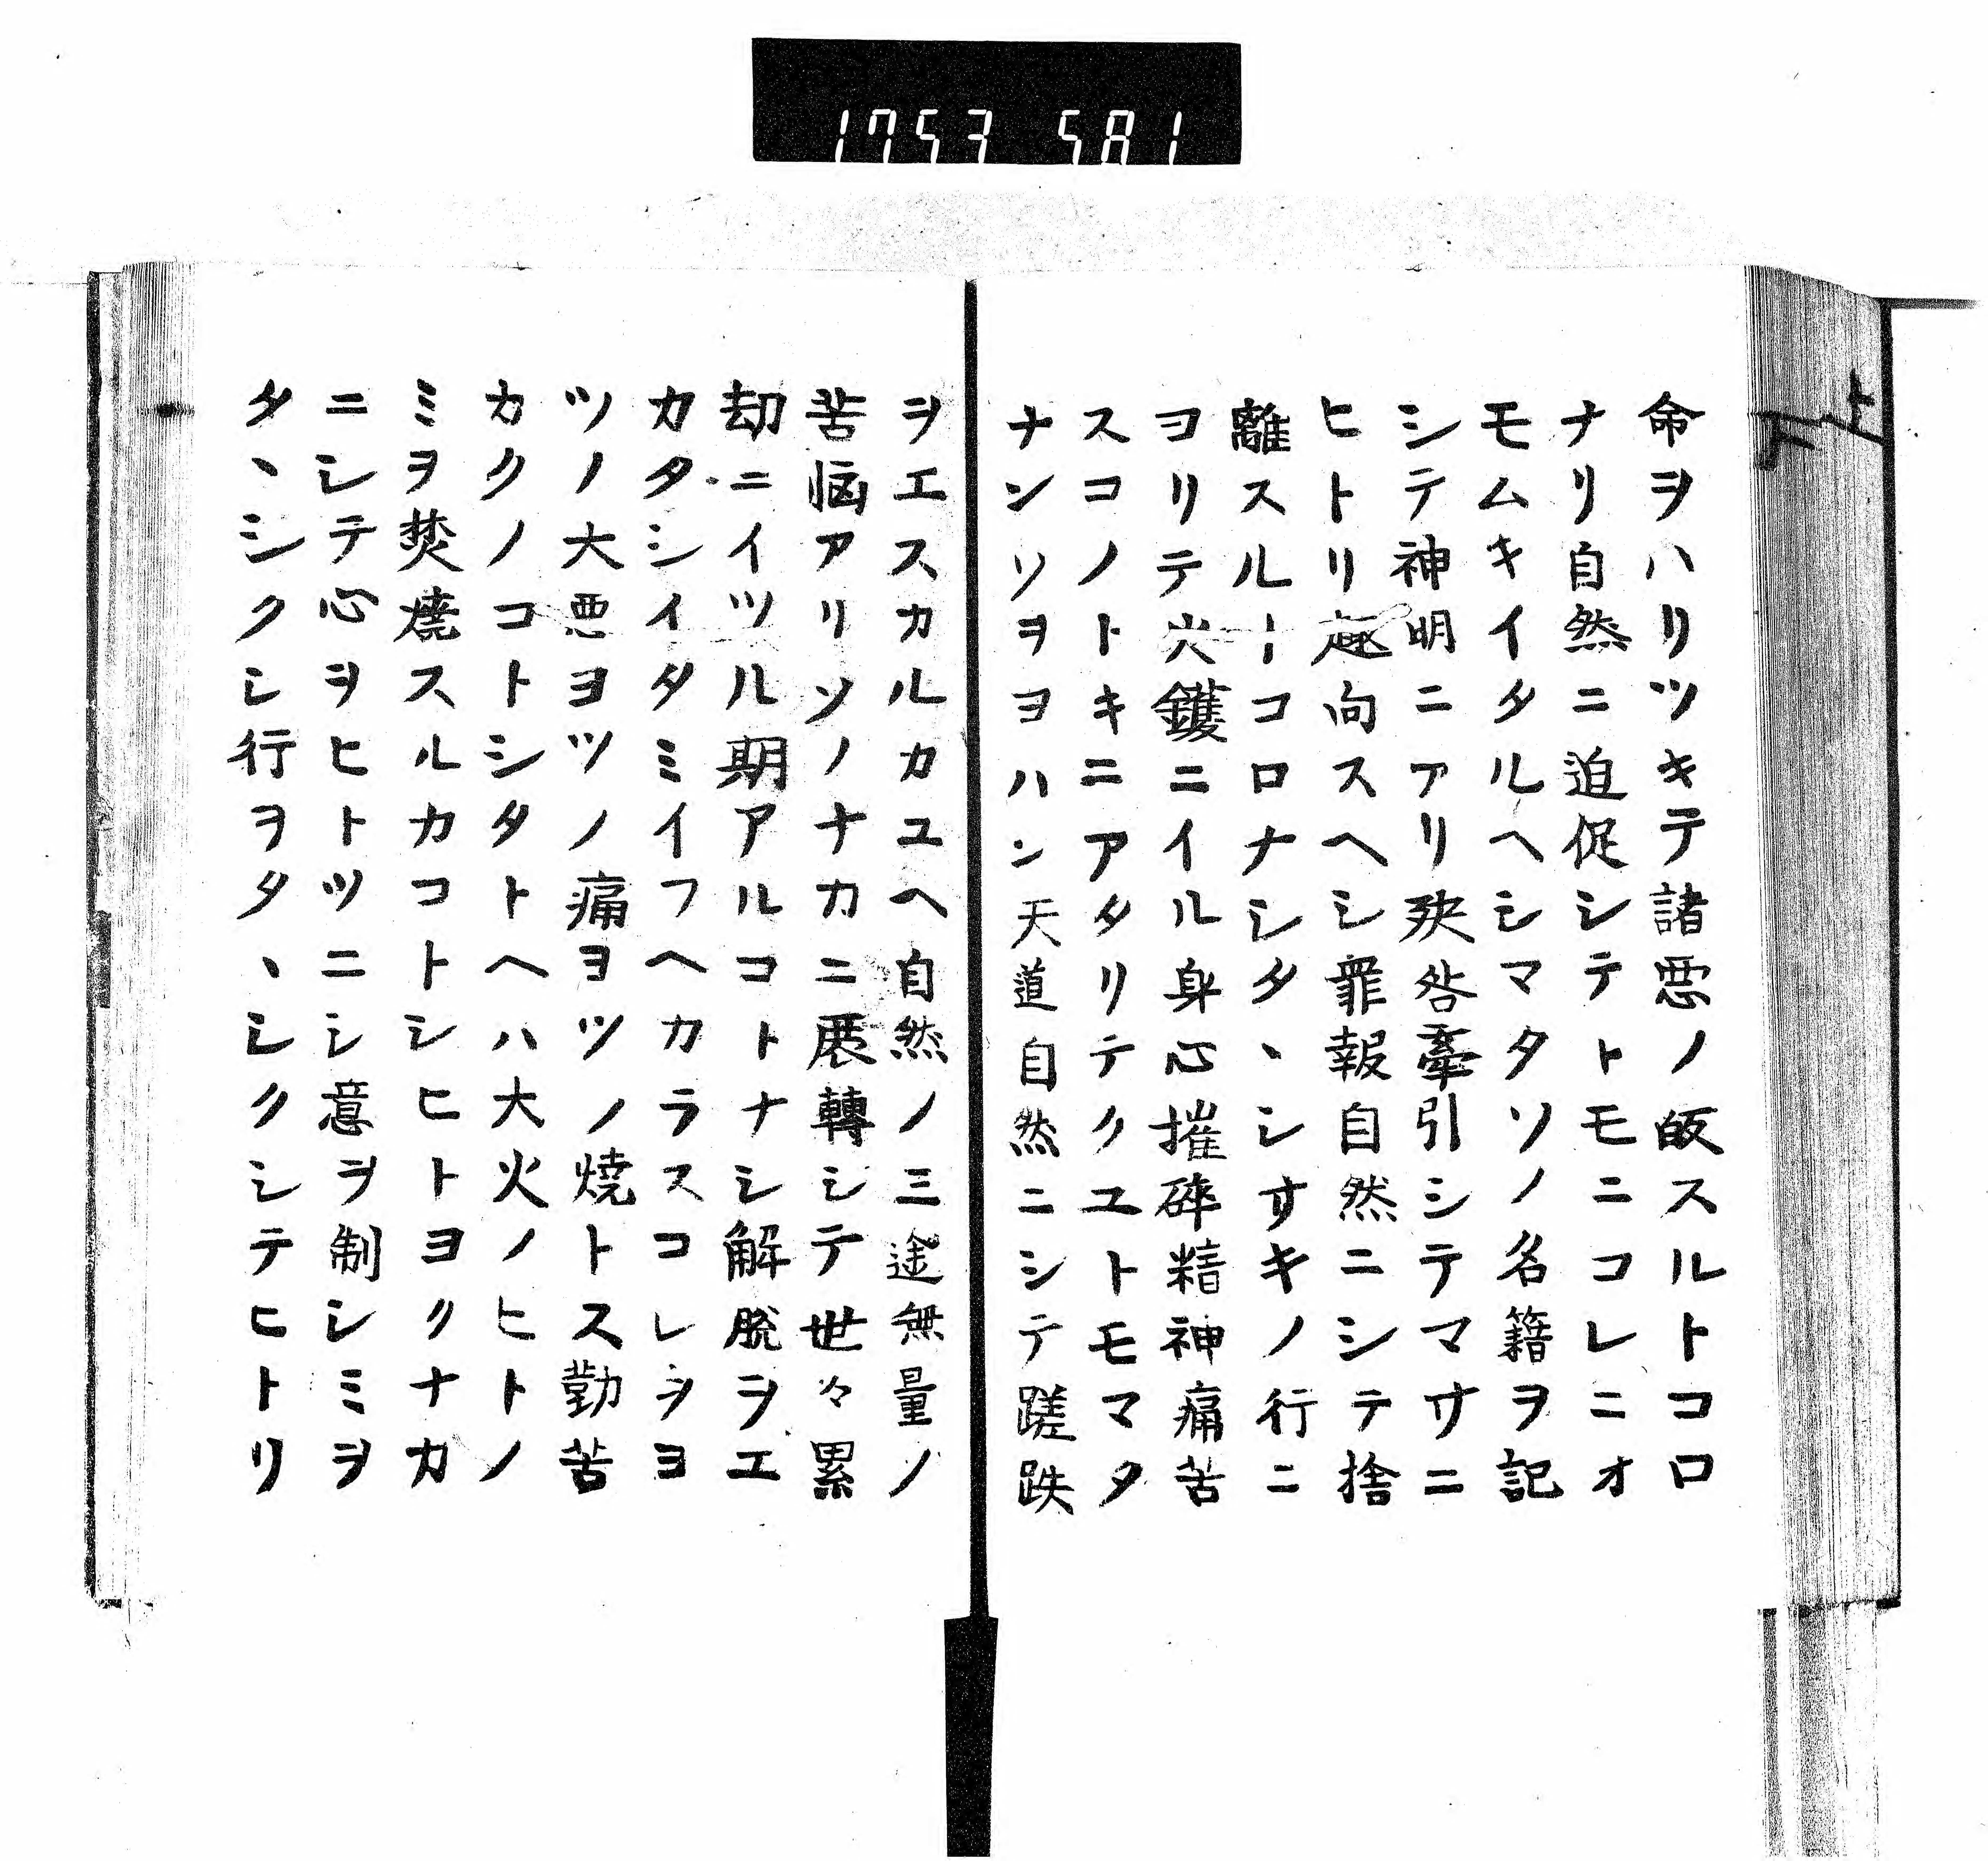 1753 581
命ヲハリツキテ諸悪ノ皈スルトコロ
ナリ自然ニ迫促シテトモニコレニオ
モムキイタルヘシマタソノ名籍ヲ記
シテ神明ニアリ殃咎牽引シテマサニ
ヒトリ趣向スヘシ罪報自然ニシテ捨
離スルーコロナシタヽシサキノ行ニ
ヨリテ火鑊ニイル身心摧碎精神痛苦
スコノトキニアタリテクユトモマタ
ナンソヲヨハン天道自然ニシテ蹉跌
ヲエスカルカユヘ自然ノ三途無量ノ
苦悩アリソノナカニ展轉シテ世々累
劫ニイツル期アルコトナシ解脱ヲエ
カタシイタミイフヘカラスコレヲヨ
ツノ大悪ヨツノ痛ヨツノ燒トス勤苦
カクノコトシタトヘハ大火ノヒトノ
ミヲ焚燒スルカコトシヒトヨクナカ
ニシテ心ヲヒトツニシ意ヲ制シミヲ
タヽシクシ行ヲタヽシクシテヒトリ